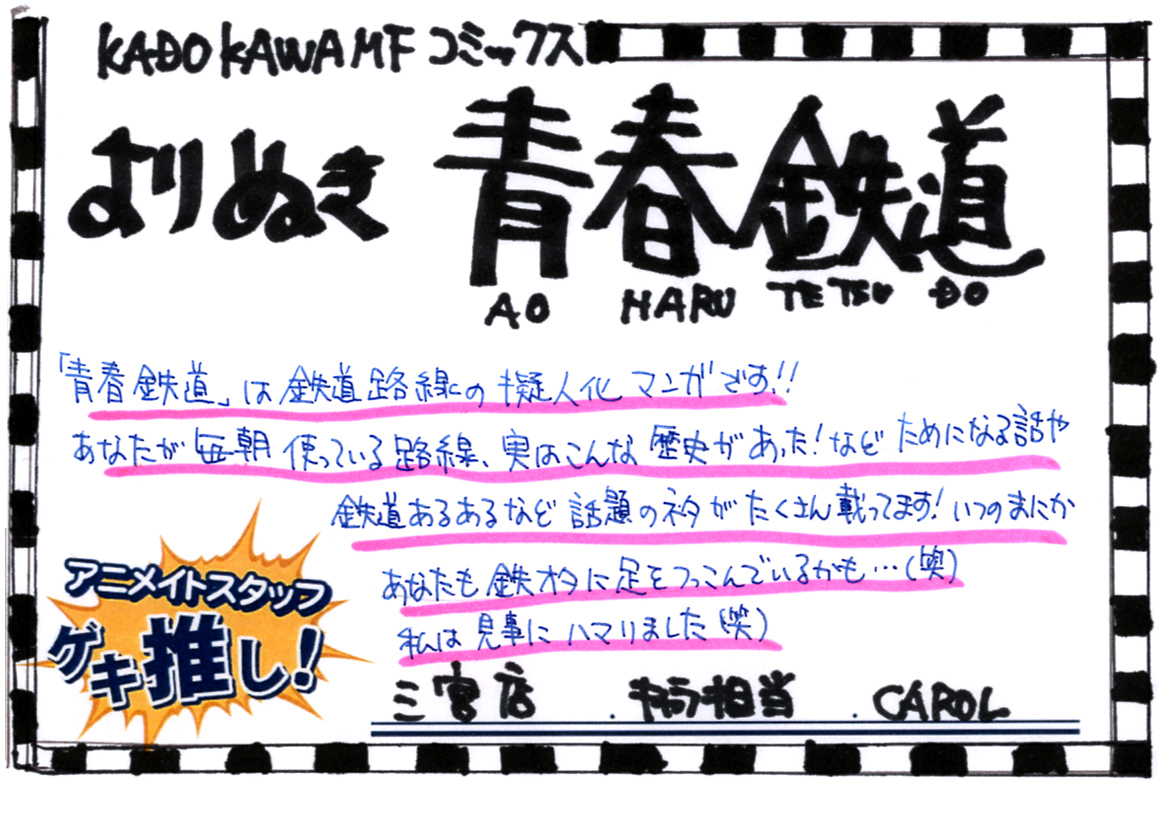 KADOKAWA MF コミックス
よりぬき 青春鉄道
AO HARU TETSU DO
「青春鉄道」は鉄道路線の擬人化マンガです!!
あなたが毎朝使っている路線、実はこんな歴史があった!など ためになる話や
鉄道あるあるなど 話題のネタがたくさん載ってます! いつのまにか
あなたも鉄オタに足をつっこんでいるかも…(笑)
私は見事にハマりました(笑)
アニメイトスタッフ
ゲキ推し!
三宮店 . キャラ担当 . CAROL